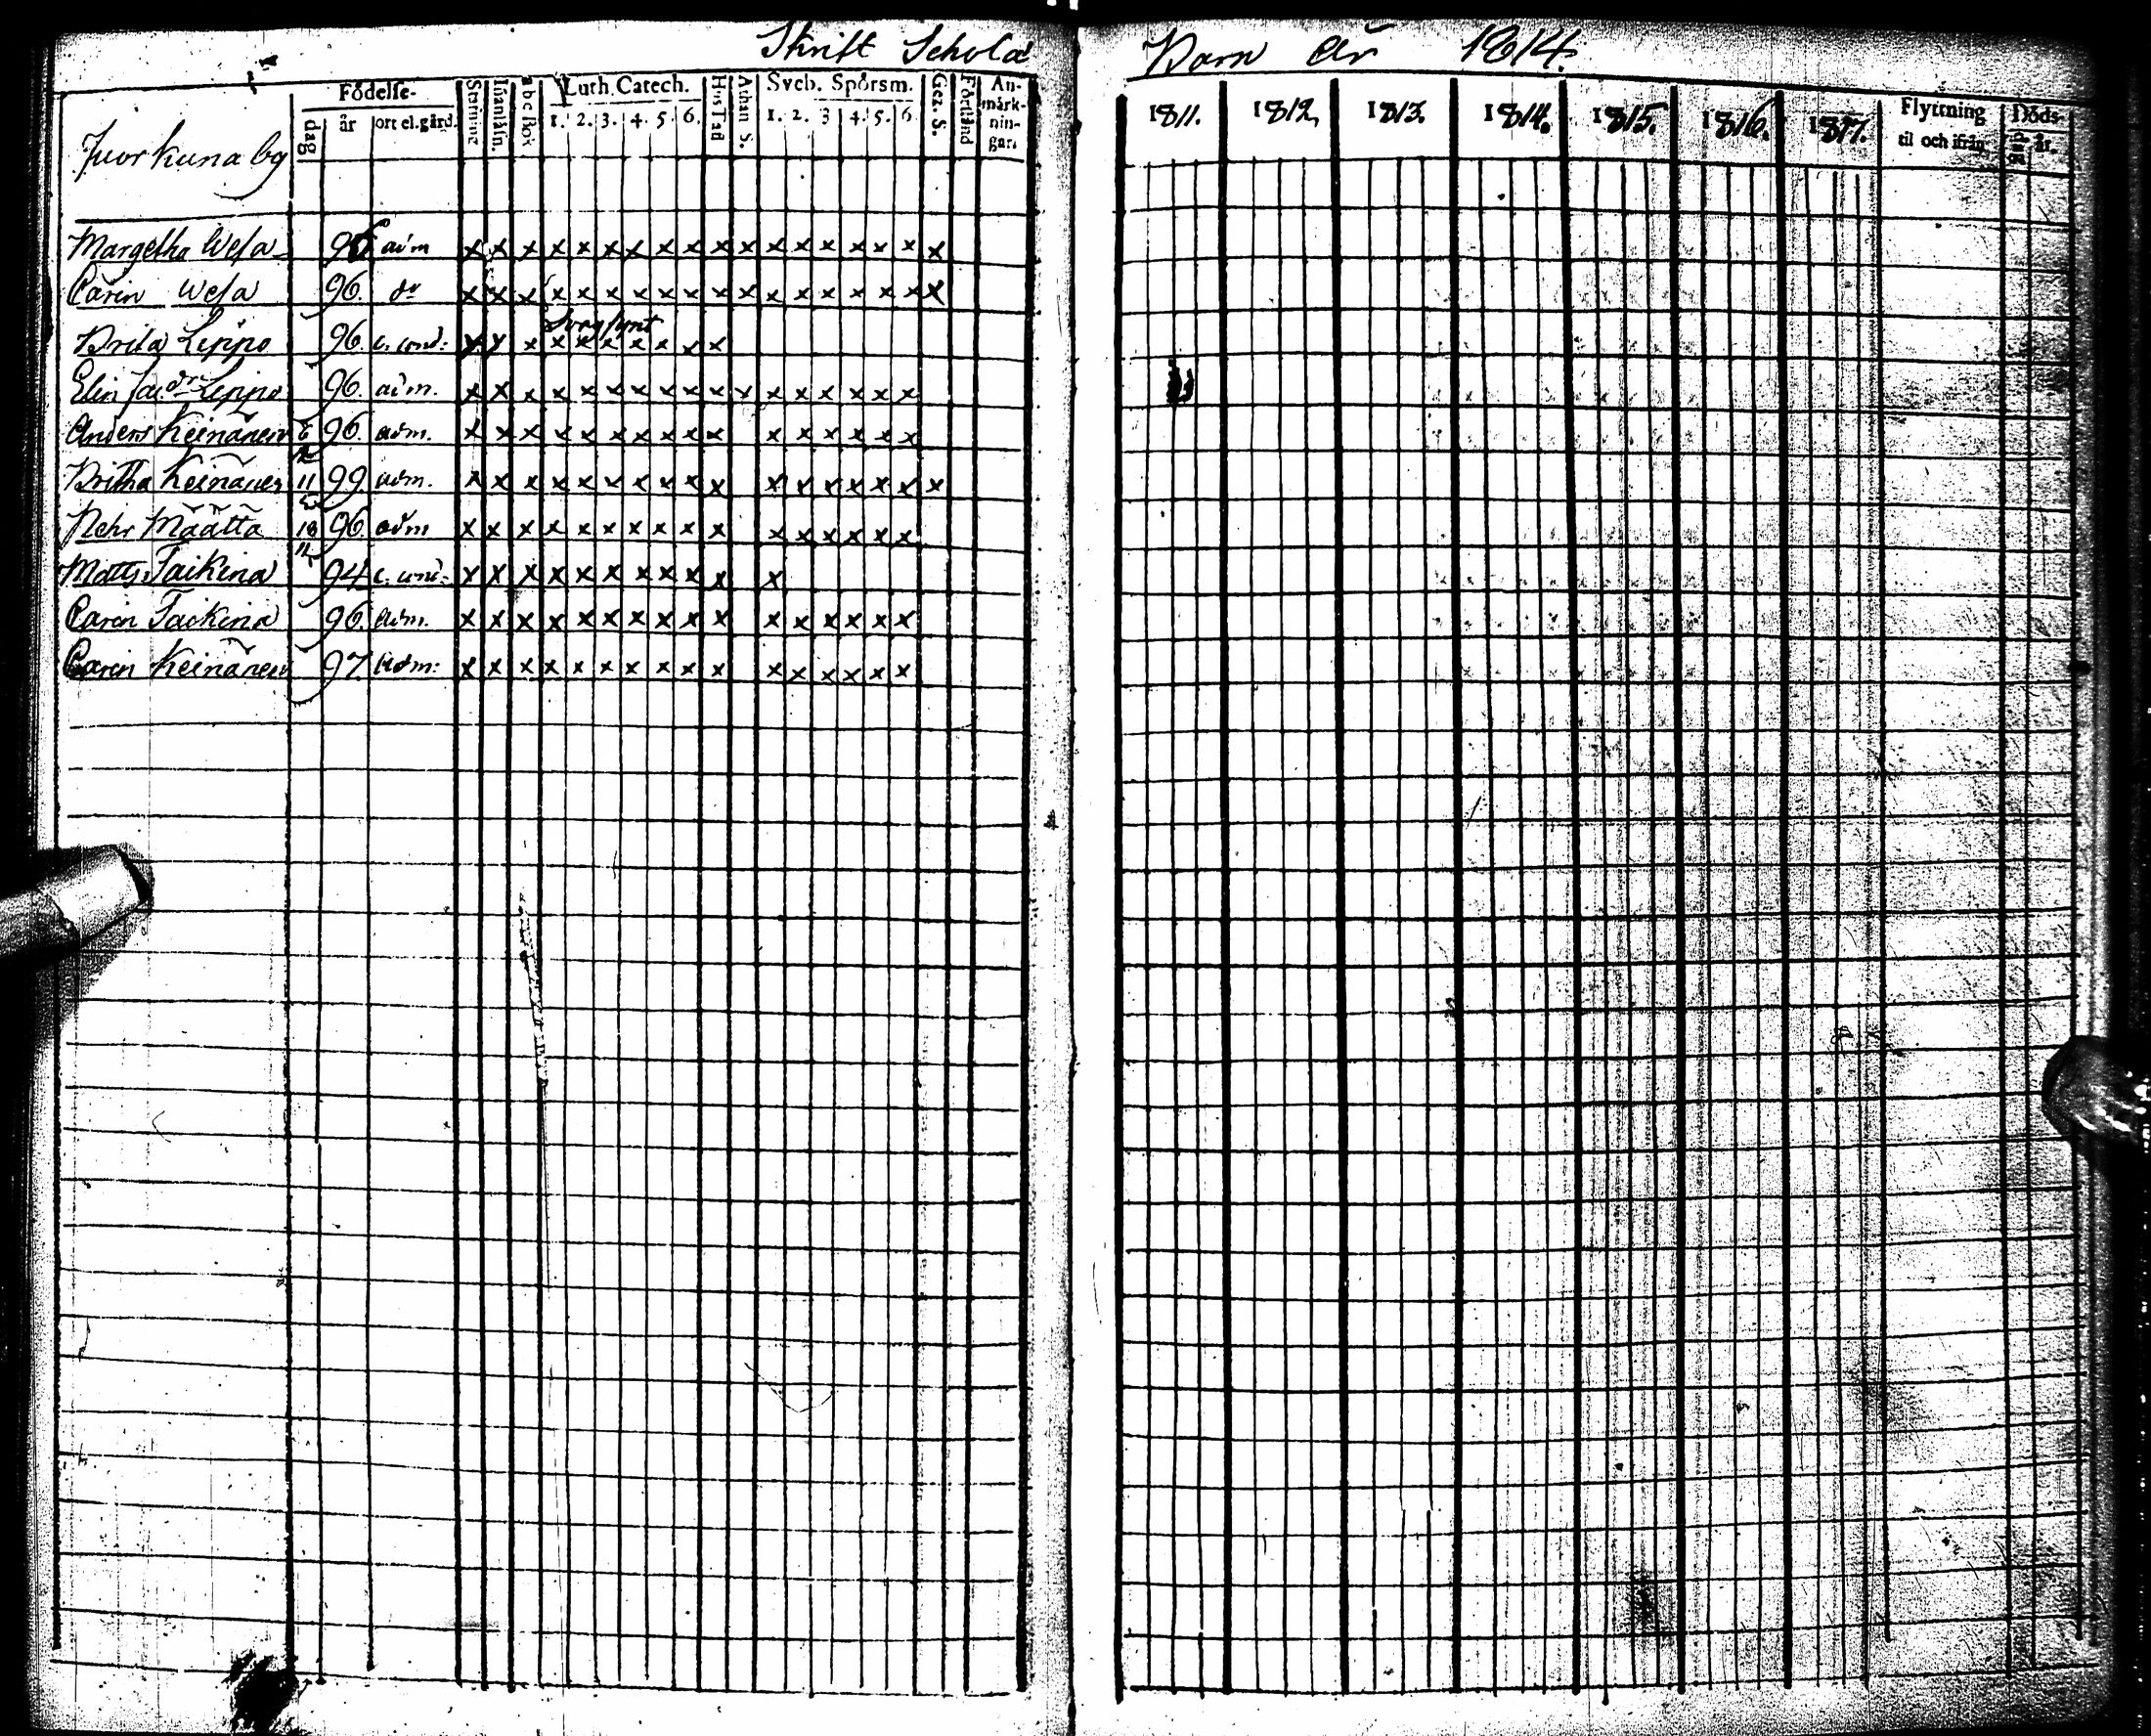 Skrift Schola Barn År 1814.
Födelse- Luth. Catech. Sveb. Spörsm. An-
dag år ort el. gård. Stafning Innanläsn. abc Bok 1. 2. 3. 4. 5. 6. HusTafl Athan. S. 1. 2. 3 4. 5. 6. Gez. S. Förstånd märk-
nin-
gar.
1811. 1812. 1813. 1814. 1815. 1816. 1817. Flyttning Döds-
til och ifrån dag år.
Juorkuna by
Margetha Wesa 96 adm x x x x x x x x x x x x x x x x x x
Carin Wesa 96. do x x x x x x x x x x x x x x x x x x
Svagsynt
Brita Leppo 96. c. cond: x x x x x x x x x x
Elin Jac.dr Leppo 96. adm. x x x x x x x x x x x x x x x x x
Anders Keinänen 6/12 96. adm. x x x x x x x x x x x x x x x x
Britha Keinänen 11/5 99 adm. x x x x x x x x x x x x x x x x x
Pehr Määttä 18/12 96. adm x x x x x x x x x x x x x x x x
Matts Taikina 94 c. cond. x x x x x x x x x x x
Carin Taikina 96. adm. x x x x x x x x x x x x x x x x
Carin Keinänen 97. adm: x x x x x x x x x x x x x x x x